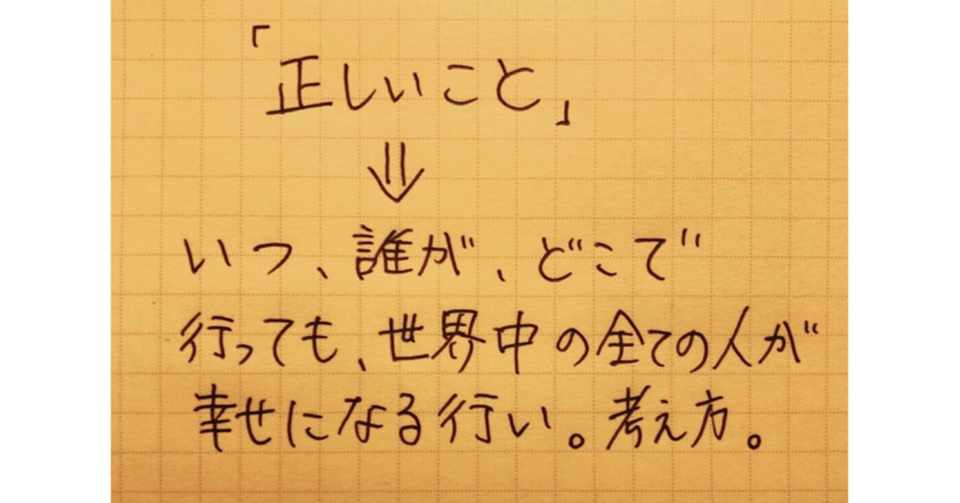 「正しいこと」
⇓
いつ、誰が、どこで
行っても、世界中の全ての人が
幸せになる行い。考え方。